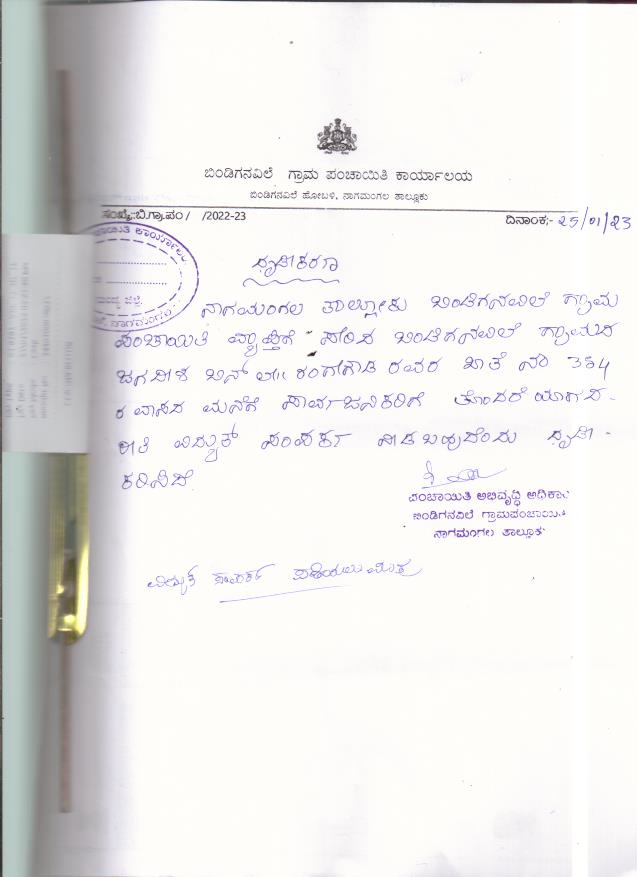 ಬಿಂಡಿಗನವಿಲೆ ಗ್ರಾಮ ಪಂಚಾಯಿತಿ ಕಾರ್ಯಾಲಯ
ಬಿಂಡಿಗನವಿಲೆ ಹೋಬಳಿ, ನಾಗಮಂಗಲ ತಾಲ್ಲೂಕು
ಸಂಖ್ಯೆ:ಬಿ.ಗ್ರಾ.ಪಂ/ /2022-23 ದಿನಾಂಕ:- 25/01/23
ಧೃಡೀಕರಣ
ನಾಗಮಂಗಲ ತಾಲ್ಲೋಕು ಬಿಂಡಿಗನವಿಲೆ ಗ್ರಾಮ
ಪಂಚಾಯಿತಿ ವ್ಯಾಪ್ತಿಗೆ ಸೇರಿದ ಬಿಂಡಿಗನವಿಲೆ ಗ್ರಾಮದ
ಜಗದೀಶ ಬಿನ್ ಲೇ|| ರಂಗೇಗೌಡ ರವರ ಖಾತೆ ನಂ 384
ರ ವಾಸದ ಮನೆಗೆ ಸಾರ್ವಜನಿಕರಿಗೆ ತೊಂದರೆಯಾಗದ
ರೀತಿ ವಿದ್ಯುತ್ ಸಂಪರ್ಕ ನೀಡಬಹುದೆಂದು ಧೃಡೀ-
ಕರಿಸಿದೆ.
ಪಂಚಾಯಿತಿ ಅಭಿವೃದ್ಧಿ ಅಧಿಕಾರಿ
ಬಿಂಡಿಗನವಿಲೆ ಗ್ರಾಮಪಂಚಾಯಿತಿ
ನಾಗಮಂಗಲ ತಾಲ್ಲೂಕು
ವಿದ್ಯುತ್ ಸಂಪರ್ಕ ಪಡೆಯಲು ಮಾತ್ರ